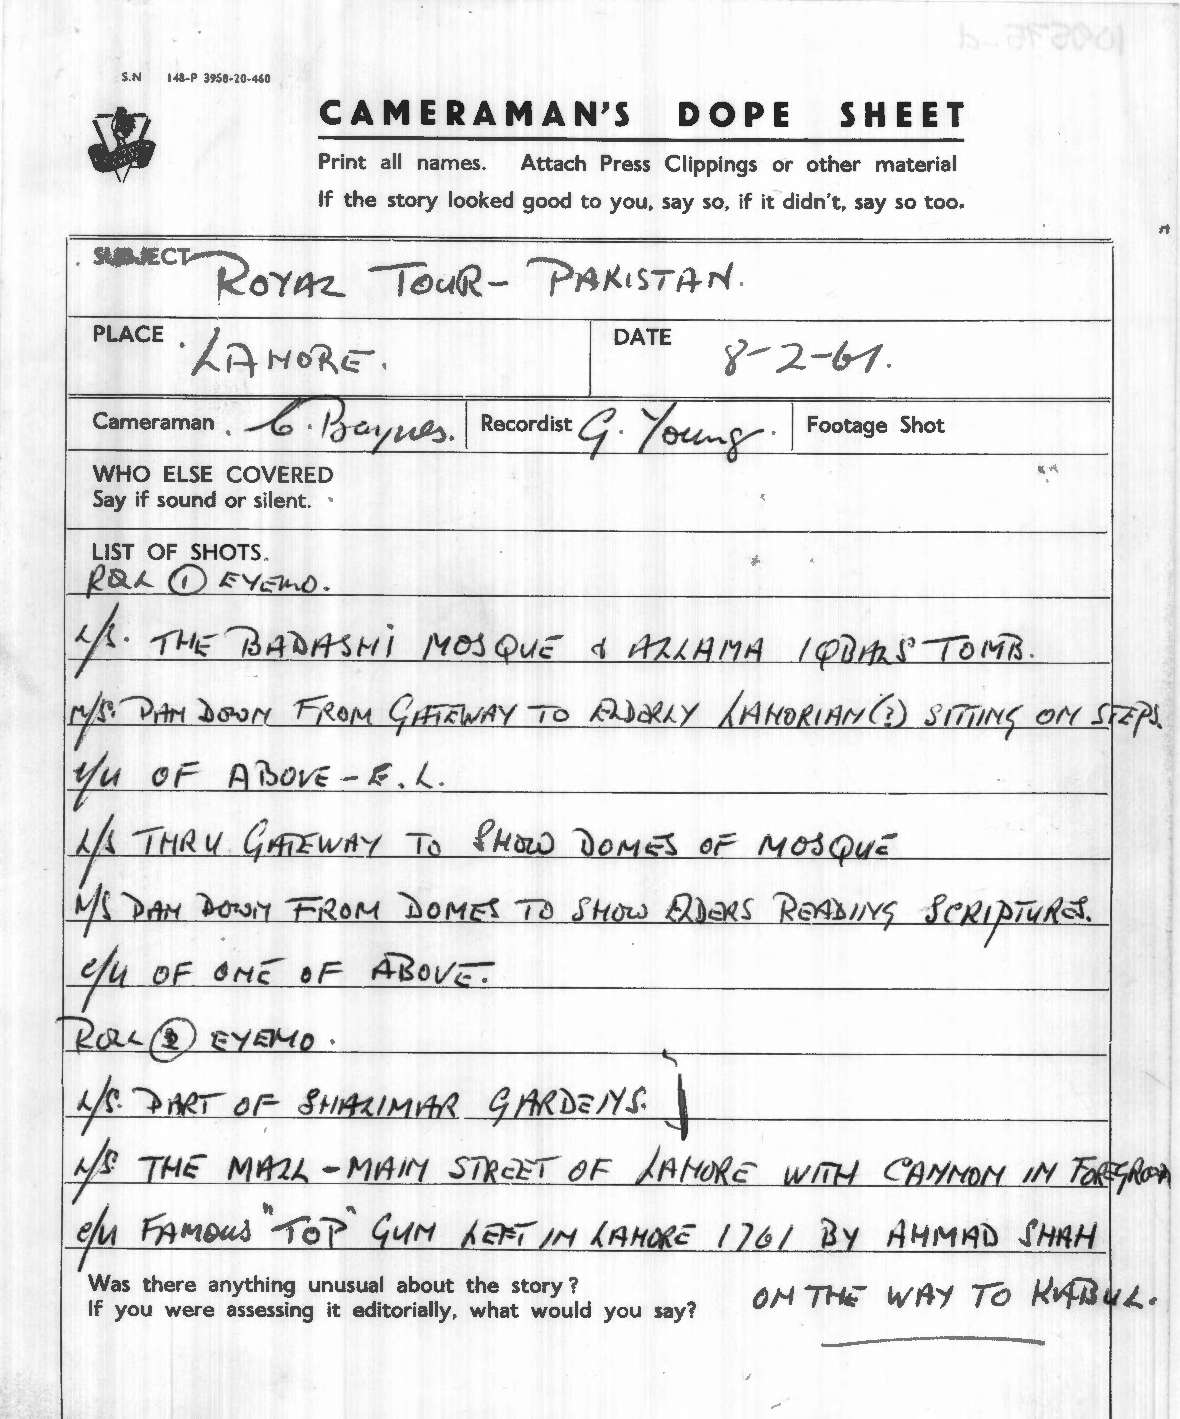 S.N 148-P 3958-20-460
CAMERAMAN'S DOPE SHEET
Print all names. Attach Press Clippings or other material
If the story looked good to you, say so, if it didn't, say so too.
SUBJECT ROYAL TOUR - PAKISTAN.
PLACE . LAHORE.
DATE 8-2-61.
Cameraman . C. Baynes.
Recordist G. Young.
Footage Shot
WHO ELSE COVERED
Say if sound or silent.
LIST OF SHOTS.
ROLL 1 EYEMO.
L/S. THE BADASHI MOSQUE & ALLAMA IQBALS' TOMB.
M/S. PAN DOWN FROM GATEWAY TO ELDERLY LAHORIAN(?) SITTING ON STEPS.
C/U OF ABOVE - E.L.
L/S THRU GATEWAY TO SHOW DOMES OF MOSQUE
M/S PAN DOWN FROM DOMES TO SHOW ELDERS READING SCRIPTURES.
C/U OF ONE OF ABOVE.
ROLL 2 EYEMO.
L/S. PART OF SHALIMAR GARDENS.
L/S THE MALL - MAIN STREET OF LAHORE WITH CANNON IN FOREGROUN
C/U FAMOUS "TOP" GUN LEFT IN LAHORE 1761 BY AHMAD SHAH
ON THE WAY TO KABUL.
Was there anything unusual about the story?
If you were assessing it editorially, what would you say?